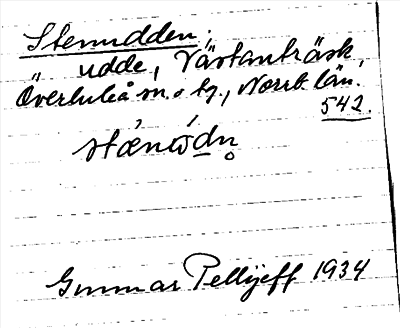 Stenudden,
udde, Västanträsk,
Överluleå sn. o tg., Norrb. län.
542.
stænωdn̥
Gunnar Pellijeff 1934